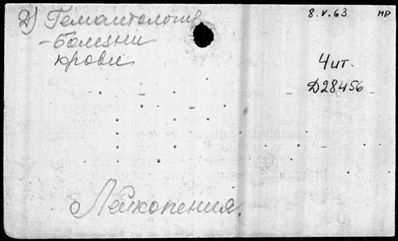 2) Гематология
8.V.63 нр
- болезни
крови
Чит.
Д28456
Лейкопения.